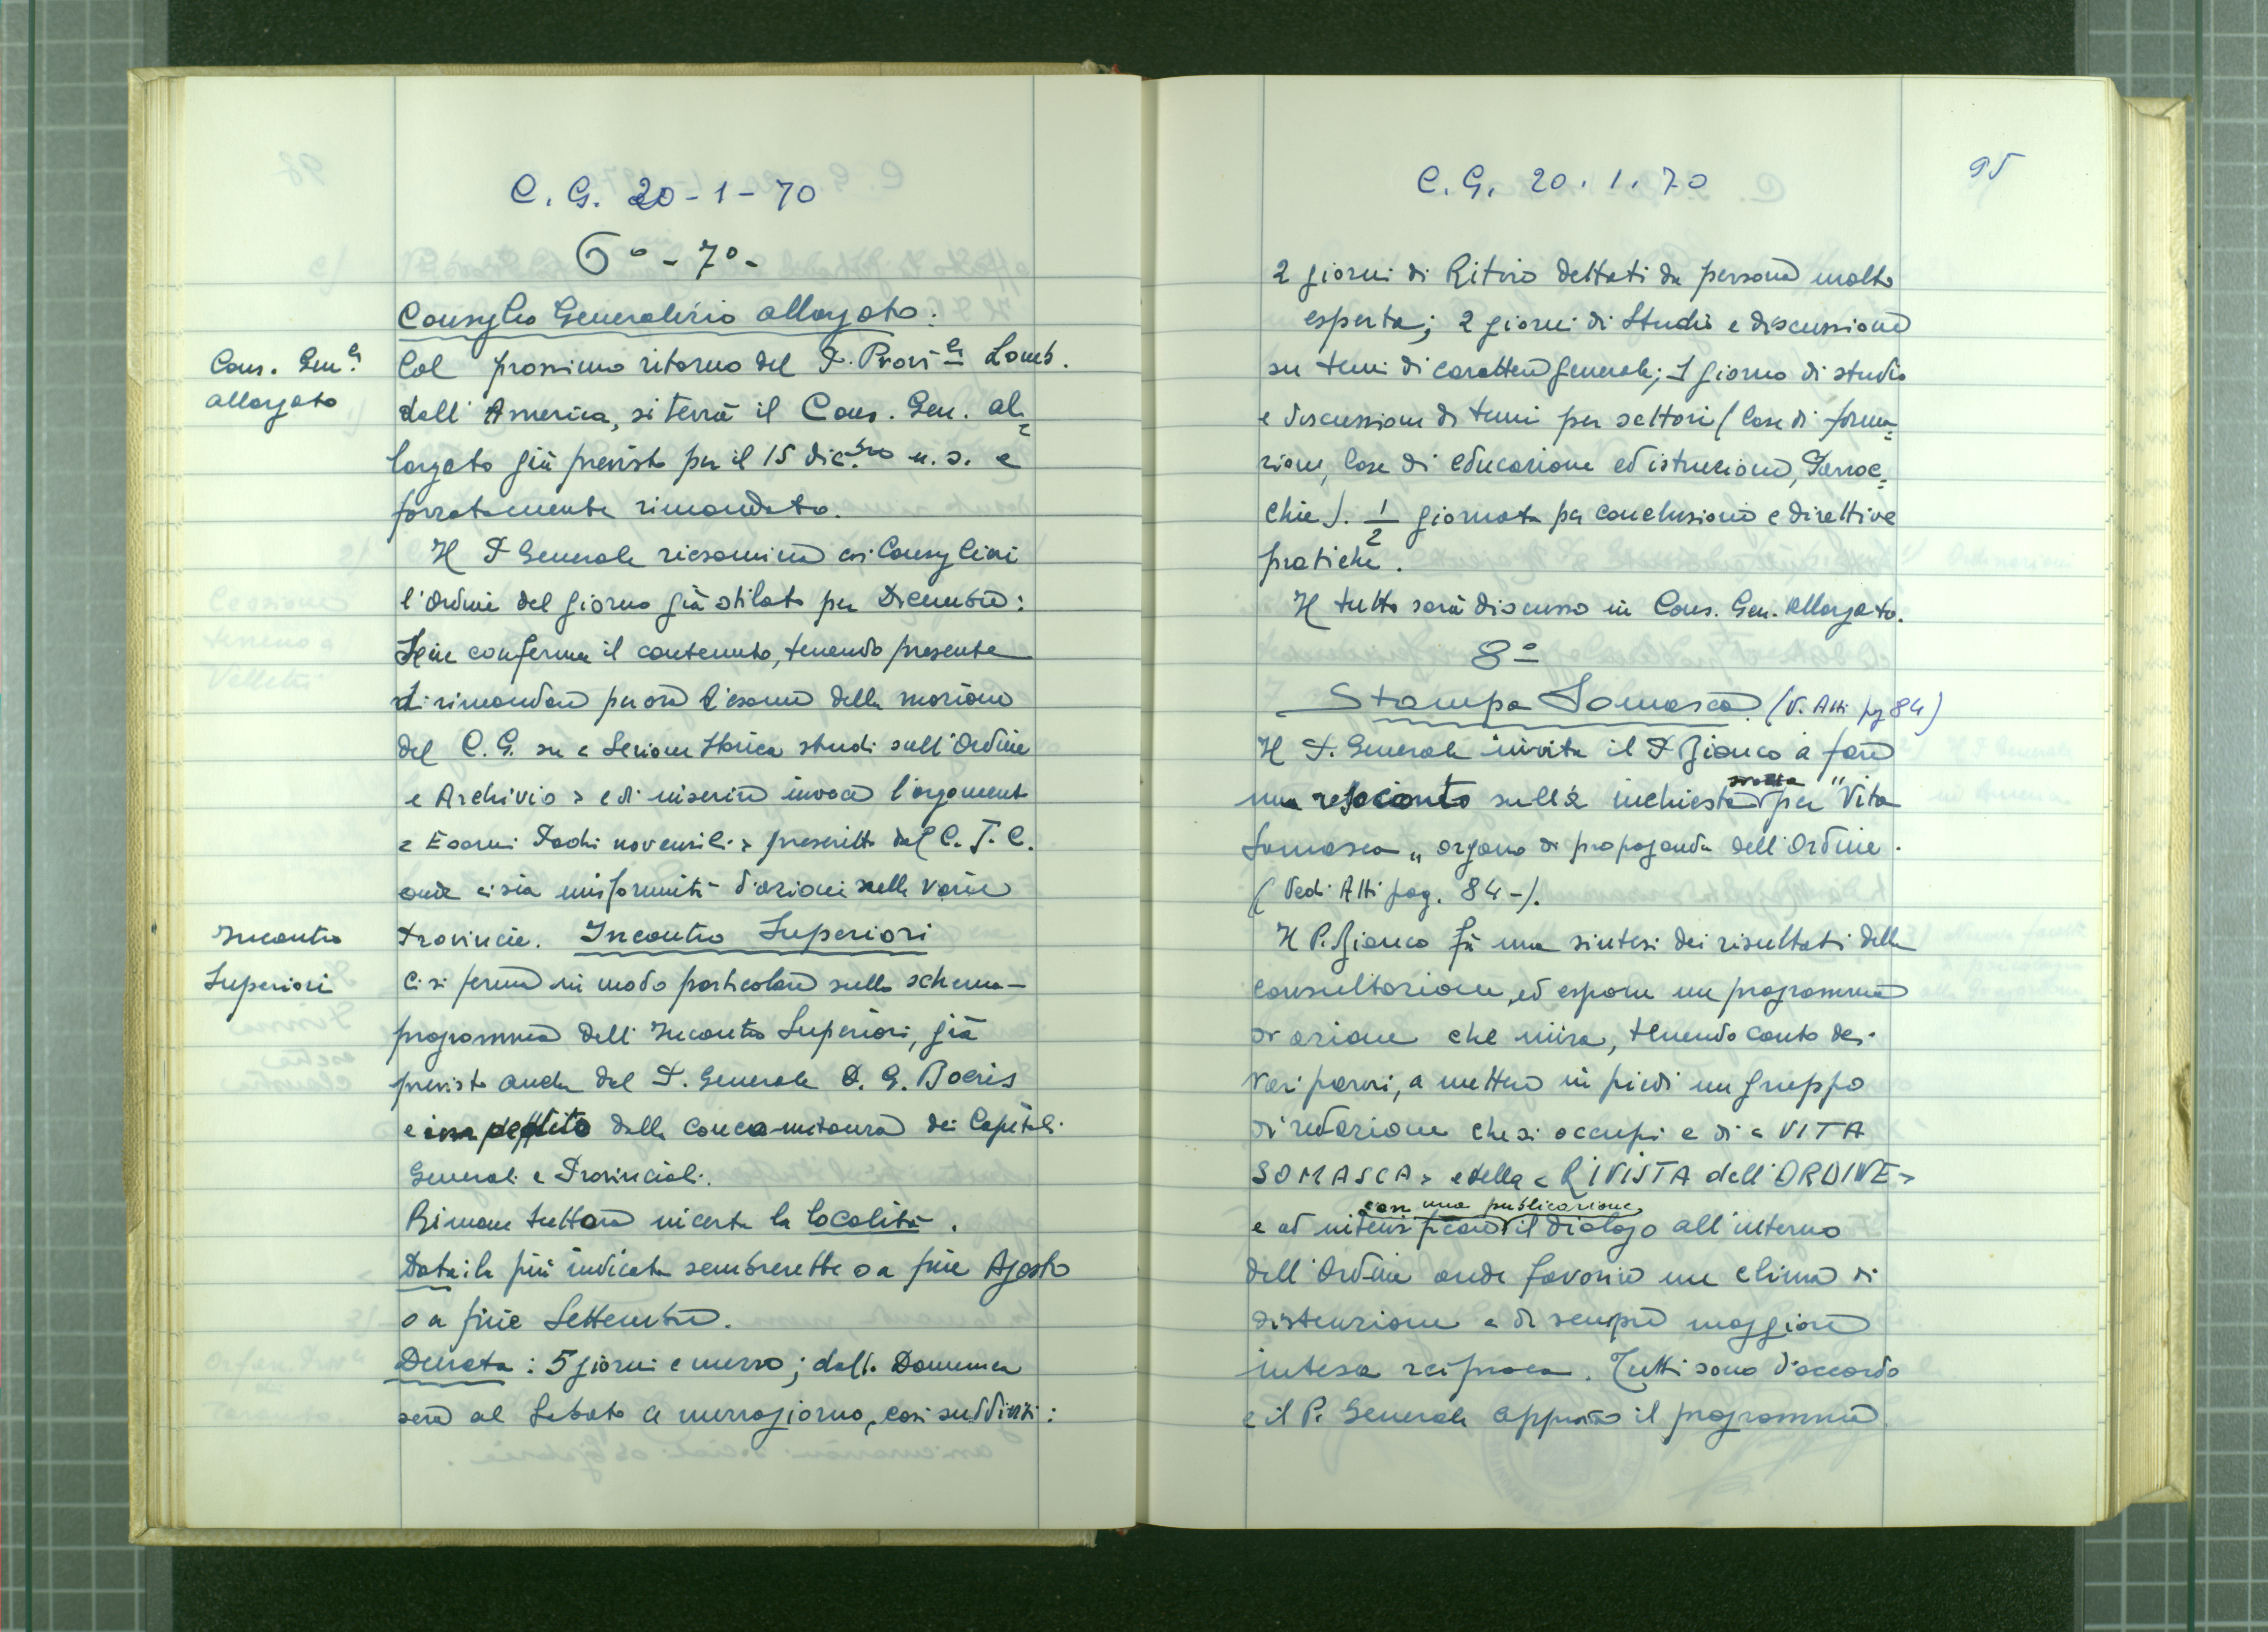 C. G. 20-1-70
6º - 7º -
Consiglio Generalizio allargato:
Cons. Gen.e
allargato
Col prossimo ritorno del P. Prov.le Lomb.
dall'America, si terrà il Cons. Gen. al=
largato già previsto per il 15 dic.bre u.s. e
forzatamente rimandato.
Il P. Generale riesamina coi Consiglieri
l'Ordine del giorno già stilato per Dicembre:
Se ne conferma il contenuto, tenendo presente
di rimandare per ora l'esame della mozione
del C. G. su « Sezione Storica studi sull'Ordine
e Archivio » e di inserire invece l'argomento
« Esami Padri novensili » prescritto dal C. J. C.
onde ci sia uniformità d'azione nelle varie
Provincie. Incontro Superiori
Incontro
Superiori
Ci si ferma in modo particolare sullo schema-
programma dell'Incontro Superiori, già
previsto anche dal P. Generale D. G. Boeris
e impedito dalla concomitanza dei Capitoli
Generali e Provinciali.
Rimane tuttora incerta la località.
Data: la più indicata sembrerebbe o a fine Agosto
o a fine Settembre.
Durata: 5 giorni e mezzo; dalla Domenica
sera al Sabato a mezzogiorno, così suddivisi:
C. G. 20.1.70
95
2 giorni di Ritiro dettati da persona molto
esperta; 2 giorni di Studio e discussione
su temi di carattere generale; 1 giorno di studio
e discussione di temi per settori (Case di forma=
zione, Case di educazione ed istruzione, Parroc=
chie). 1/2 giornata per conclusione e direttive
pratiche.
Il tutto sarà discusso in Cons. Gen. allargato.
8º
Stampa Somasca (V. Atti pg 84)
Il P. Generale invita il P. Bianco a fare
un resoconto sulla inchiesta svolta per "Vita
Somasca" organo di propaganda dell'Ordine.
(Vedi Atti pag. 84-).
Il P. Bianco fà una sintesi dei risultati della
consultazione, ed espone un programma
di azione che mira, tenendo conto dei
vari pareri, a mettere in piedi un gruppo
di redazione che si occupi e di « VITA
SOMASCA » e della « RIVISTA dell'ORDINE »
e ad intensificare con una pubblicazione il dialogo all'interno
dell'Ordine onde favorire un clima di
distenzione e di sempre maggiore
intesa reciproca. Tutti sono d'accordo
e il P. Generale approva il programma.